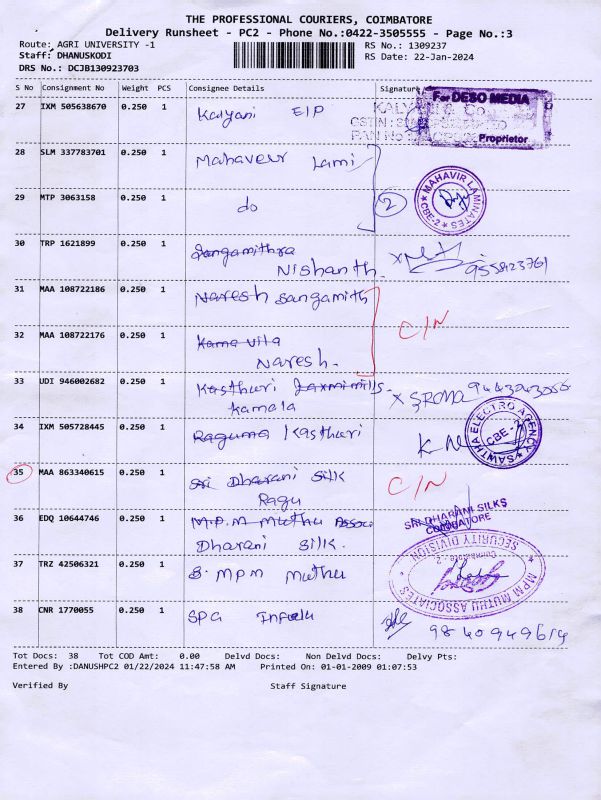 THE PROFESSIONAL COURIERS, COIMBATORE
Delivery Runsheet - PC2 - Phone No.:0422-3505555 - Page No.:3
Route: AGRI UNIVERSITY -1 RS No.: 1309237
Staff: DHANUSKODI RS Date: 22-Jan-2024
DRS No.: DCJB130923703
S No Consignment No Weight PCS Consignee Details Signature
27 IXM 505638670 0.250 1 Kalyani EIP
For DESO MEDIA
Proprietor
28 SLM 337783701 0.250 1 Mahaveer Lami
29 MTP 3063158 0.250 1 do 2
MAHAVIR LAMINATES
CBE-2
30 TRP 1621899 0.250 1 Sangamithra
Nishanth
31 MAA 108722186 0.250 1 Naresh Sangamith
C/N
32 MAA 108722176 0.250 1 Kama vila
Naresh.
33 UDI 946002682 0.250 1 Kasthuri Laxmi mills
Kamala
34 IXM 505728445 0.250 1 Raguma Kasthuri
SAWTHA ELECTRO AGENCY
CBE-
35 MAA 863340615 0.250 1 Sri Dharani Silk C/N
Ragu
36 EDQ 10644746 0.250 1 M.P.M Muthu Assoc
Dharani Silk.
SRI DHARANI SILKS
COIMBATORE
37 TRZ 42506321 0.250 1 S. MPM Muthu
MPM MUTHU ASSOCIATES
SECURITY DIVISION
Coimbatore - 2
38 CNR 1770055 0.250 1 SPG
9840949614
Tot Docs: 38 Tot COD Amt: 0.00 Delvd Docs: Non Delvd Docs: Delvy Pts:
Entered By :DANUSHPC2 01/22/2024 11:47:58 AM Printed On: 01-01-2009 01:07:53
Verified By Staff Signature